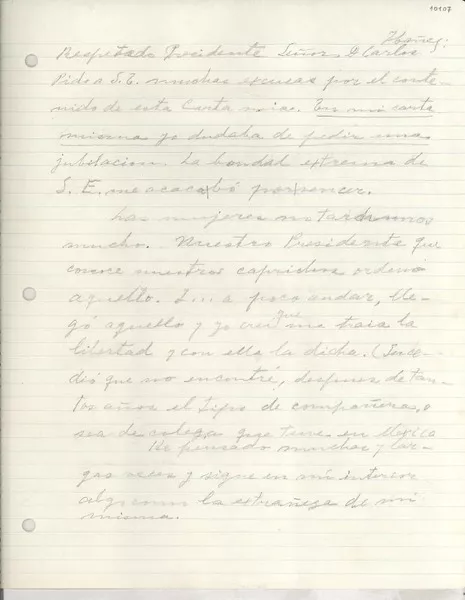 10107
Ibañez:
Respetado Presidente Señor D Carlos
Pido a S.E. muchas excusas por el conte-
nido de esta Carta mia. En mi carta
misma yo dudaba de pedir una
jubilacion. La bondad extrema de
S. E. me acabó por vencer.
Las mujeres no tardamos
mucho. Nuestro Presidente que
conoce nuestros caprichos ordenó
aquello. I... a poco andar, lle-
gó aquello y yo creí que me traia la
libertad y con ella la dicha. (
dió que no encontré, despues de tan-
tos años el tipo de compañera, o
sea de colega que tuve en Mexico
He pensado muchas y lar-
gas veces y sigue en mi interior
la extrañeza de mi
misma.